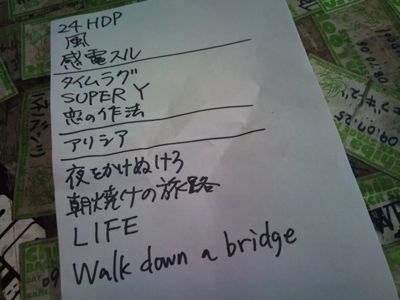 24 HDP
風
感電スル
タイムラグ
SUPER Y
恋の作法
アリシア
夜をかけぬけろ
朝焼けの旅路
LIFE
Walk down a bridge
09.07.25